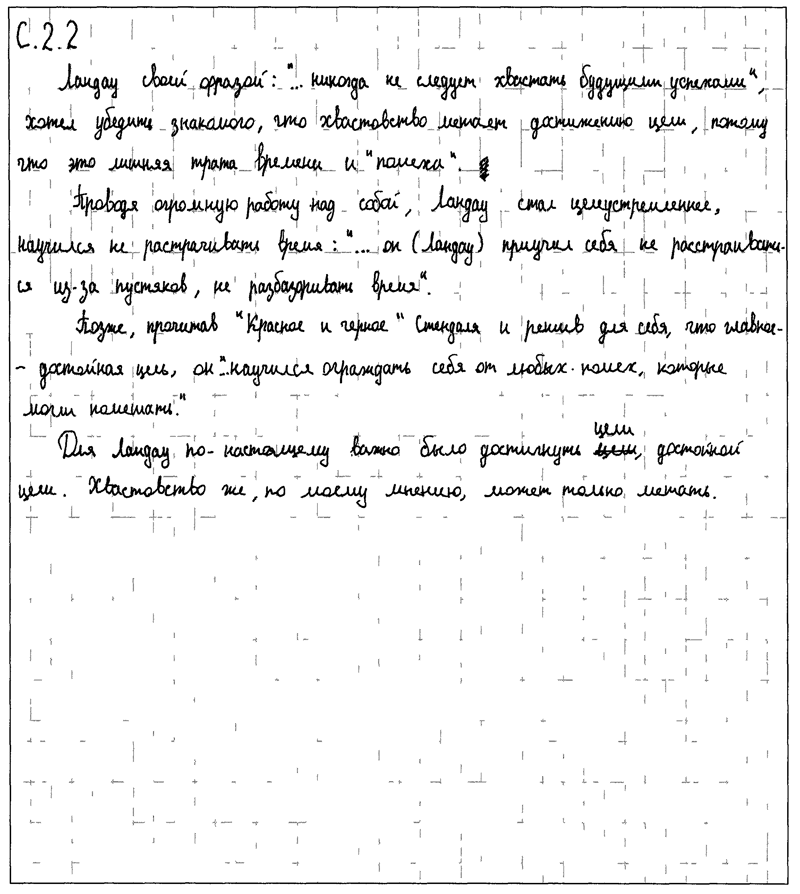 С.2.2
Ландау своей фразой: "... никогда не следует хвастать будущими успехами",
хотел убедить знакомого, что хвастовство мешает достижению цели, потому
что это лишняя трата времени и "помеха".
Проводя огромную работу над собой, Ландау стал целеустремленнее,
научился не растрачивать время: "... он (Ландау) приучил себя не расстраивать-
ся из-за пустяков, не разбазаривать время".
Позже, прочитав "Красное и черное" Стендаля и решив для себя, что главное-
- достойная цель, он "..научился ограждать себя от любых помех, которые
могли помешать."
цели
Для Ландау по-настоящему важно было достигнуть цели, достойной
цели. Хвастовство же, по моему мнению, может только мешать.